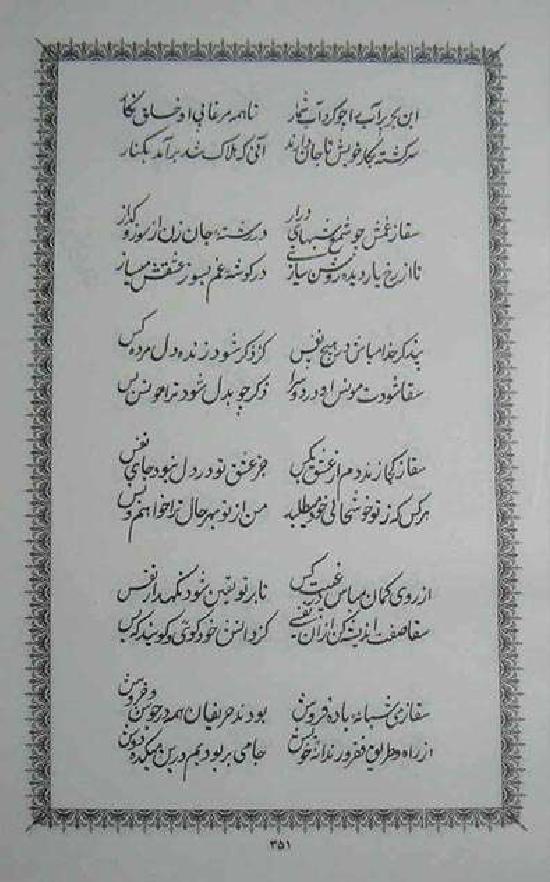 این بحر پر آب را چو کرد آب نثار تا همه مرغابی او خلق نگار
سرگشته بکار خویش تا جان دارند آنی که هلاک شد برآمد بکنار
سقا ز غمش چو شمع شبهای دراز در رشته جان زن از سوز و گداز
تا از رخ یار دیده روشن سازی در گوشه غم بسوز عشقش میساز
بی ذکر خدا مباش در هیچ نفس کز ذکر شود زنده دل مرده کس
سقا شودت مونس او در دو سرا ذکر چو بدل شود ترا مونس بس
سقا ز کجا زند دم از عشق بکس جز عشق تو در دل نبود جای نفس
هر کس که ز تو خوشحالی خود میطلبد من از تو بهر حال ترا خواهم و بس
از روی گمان مباش در غیبت کس تا بر تو یقین شود نگهدار نفس
سقا صفت اندیشه کن از آن نفسی کز دانش خود کوی و کویند کس
سقا ز می شبانه باده فروش بودند حریفان همه در جوش و خروش
از راه و طریق فقر و رندانه خویش جامی بربودیم درین میکده دوش
۳۵۱